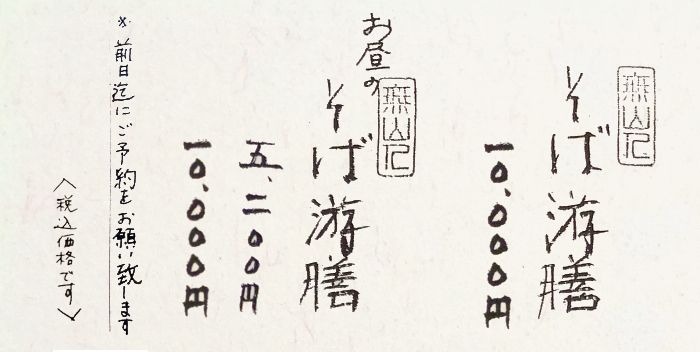 無山人
そば游膳
一〇、〇〇〇円
無山人
お昼の
そば游膳
五、二〇〇円
一〇、〇〇〇円
※前日迄にご予約をお願い致します
〈税込価格です〉